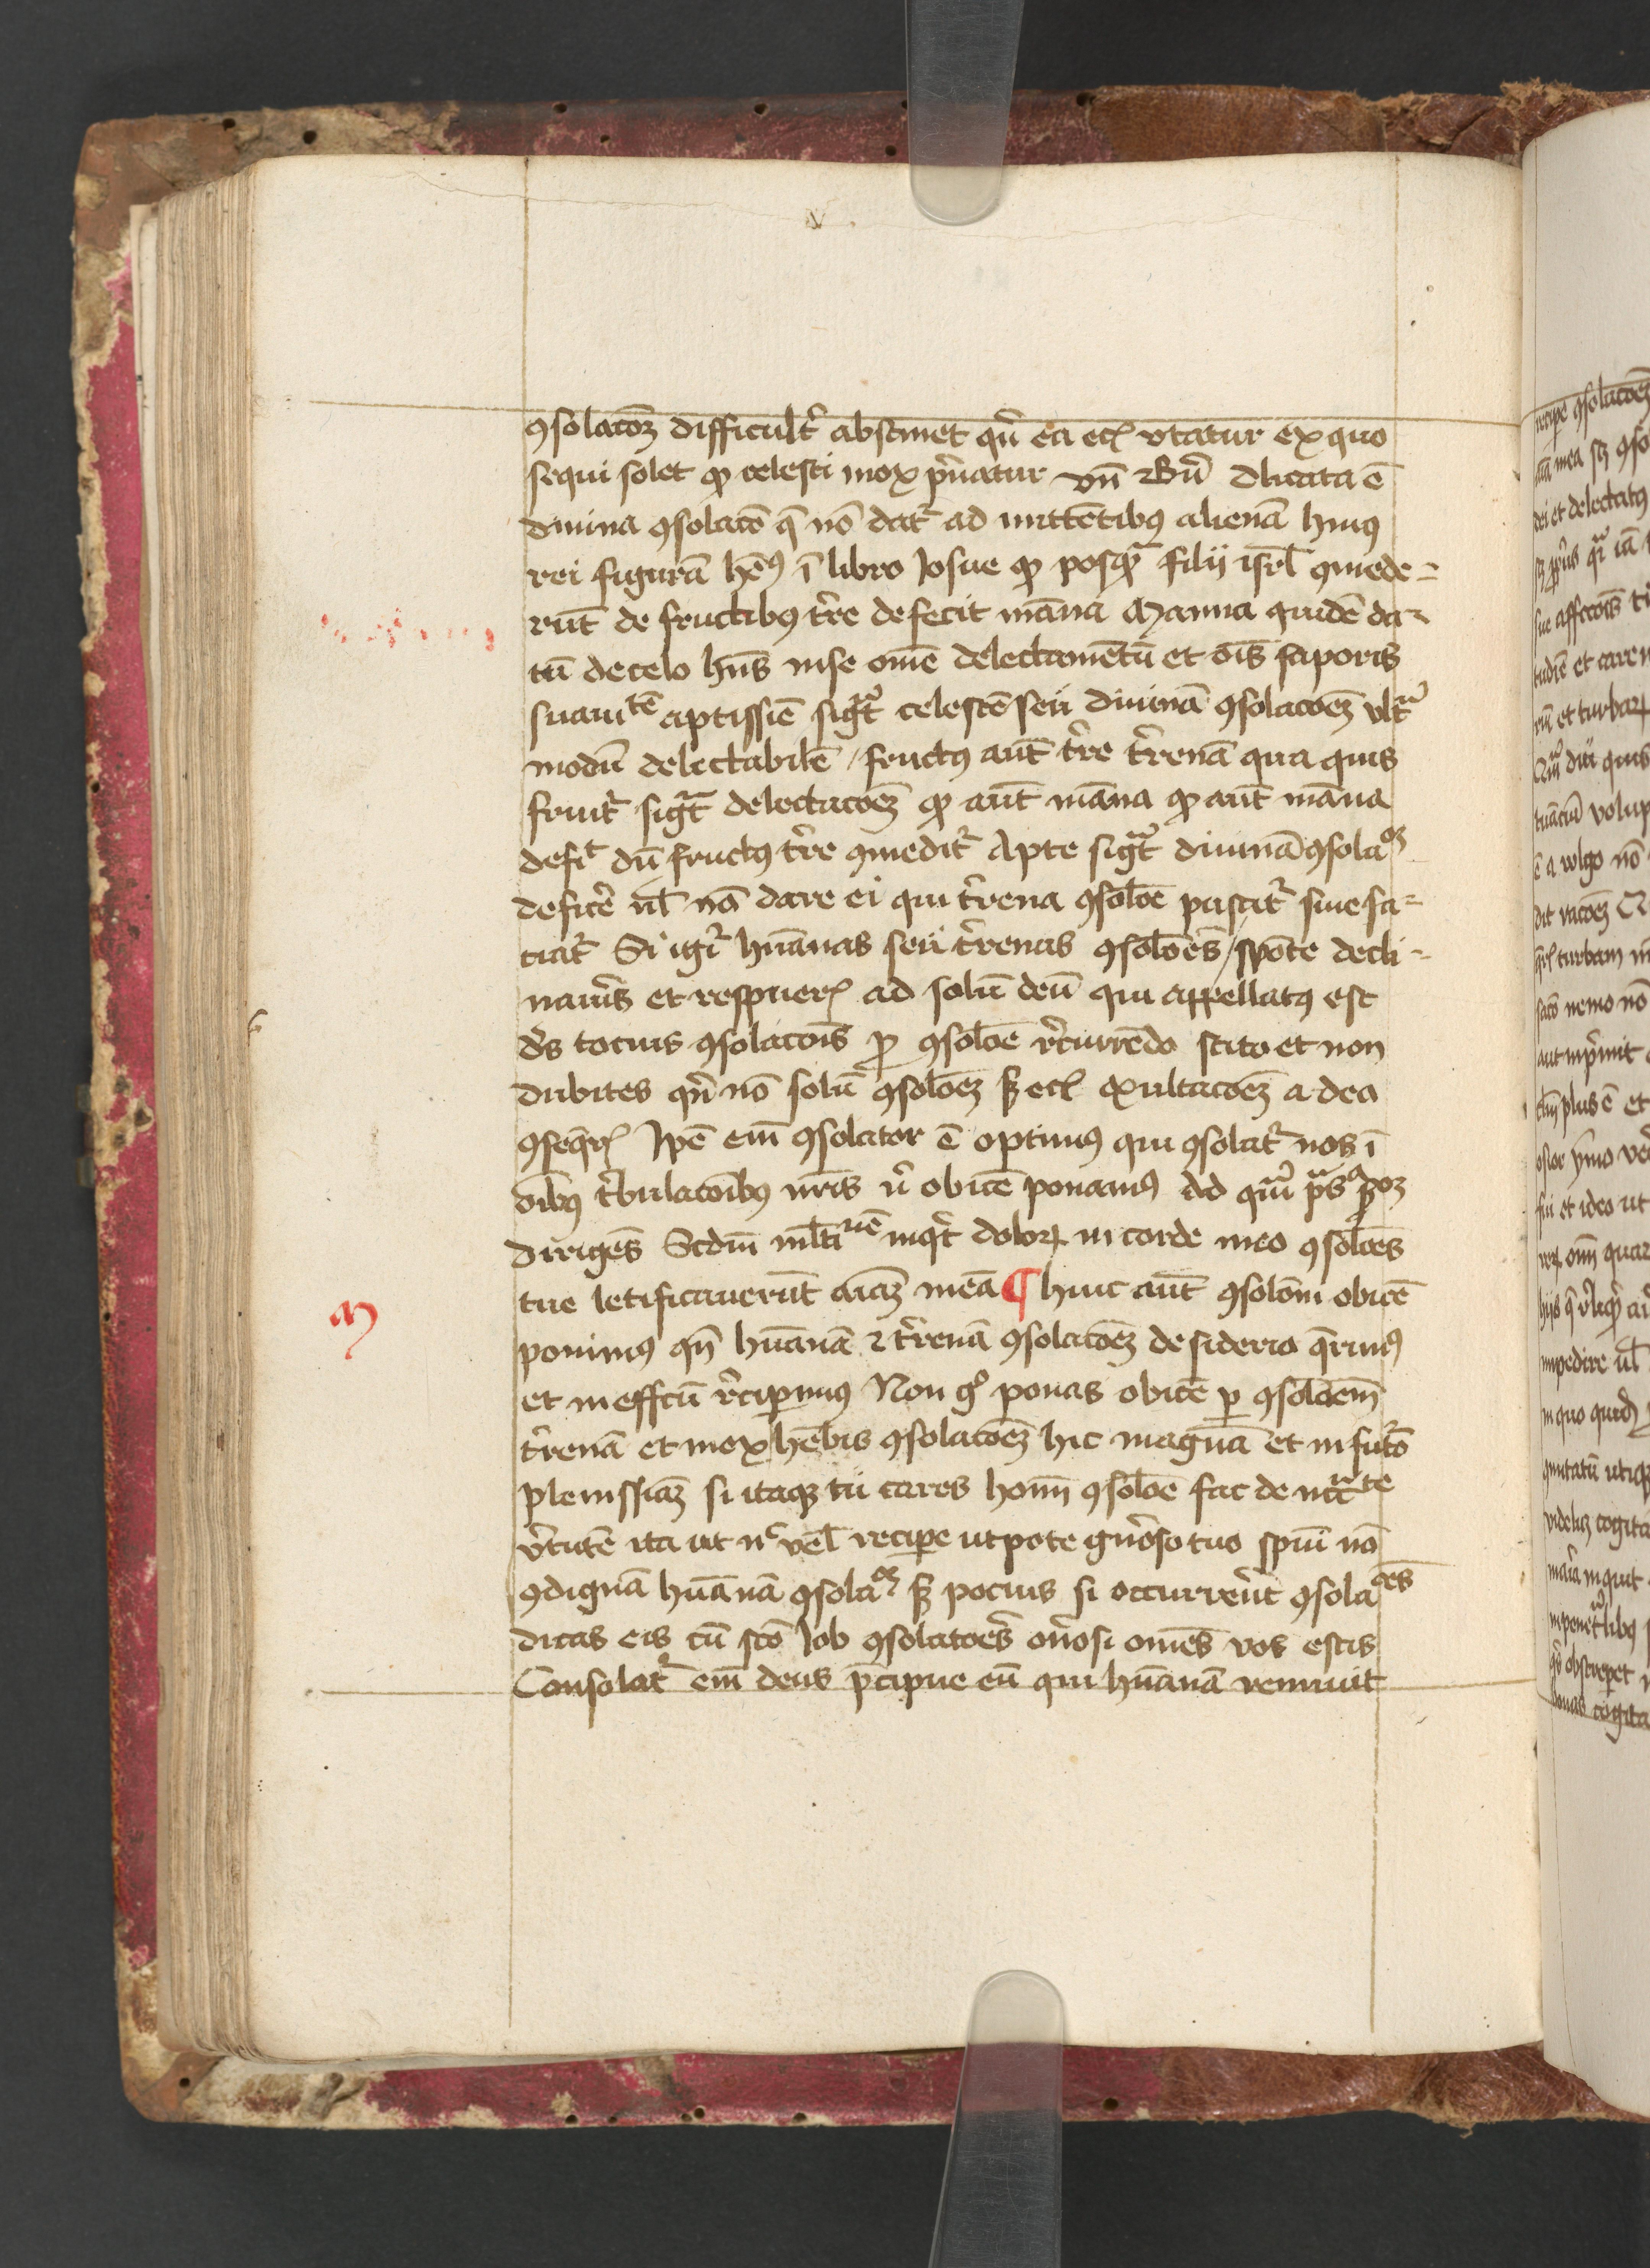 ꝯsolacōꝫ difficult̉ abstinet qn̄ ea ecꝭ vtatur ex quo
sequi solet ꝙ celesti mox p̉uatur vn̄ Bn̄ Dlicata ē
diuina ꝯsolacō q̄ nō dat̉ ad mittētibꝰ alienā huiꝰ
rei figurā hēꝰ ī libro Josue ꝙ posqᷓ filij isrl̄ ꝯmede⸗
rūt de fructibꝰ tr̉re defecit māna Manna quidē da⸗
tū de celo hn̄s in se om̄e delectamētū et oīs saporis
suauitē aptissīe sigᷓt celestē seu diuinā ꝯsolacōeꝫ vltᷓ
modū delectabilē / fructꝰ aūt tr̉re tr̉renā qua quis
fruit̉ sigᷓt delectacōeꝫ ꝙ aūt māna ꝙ aūt māna
defīt dū fructꝰ tr̉re ꝯmedit̉ Apte sigᷓt diuinā ꝯsolaꝫ
deficē ul̄ nō dare ei qui tr̉rena ꝯsolōe pascit̉ siue sa⸗
ciat̉ Si igr̉ hūanas seu tr̉renas ꝯsolōes / sponte decli⸗
naueris et respuerꝭ ad solū deū qui appellatꝰ est
ds̄ tocius ꝯsolacōis ꝓ ꝯsolōe r̉currēdo scito et non
dubites qn̄ nō solū ꝯsolōeꝫ sꝫ ecꝭ exultacōeꝫ a deo
ꝯseqrꝭ Ip̄e em̄ ꝯsolator ē optimꝰ qui ꝯsolat̉ nos ī
oībꝰ tr̉bulacōibꝰ nr̄is
dirigēs Scdm̄ ml̄titudinē inqt̉ dolorꝝ in corde meo ꝯsolōes
tue letificauerūt aīaꝫ meā ¶ huic aūt ꝯsolōni obicē
ponimꝰ qn̄ hūanā ⁊ tr̉renā ꝯsolacōeꝫ desiderio q̄rimꝰ
et in effcū r̉cipimus Non gͦ ponas obicē ꝑ ꝯsolōem
tr̉renā et mox hēbis ꝯsolacōeꝫ hic magnā et in futō
plenissīaꝫ si itaqꝫ tu cares hom̄ ꝯsolōe fac de nccᷓte
v̉tutē ita ut nͨ vel̄ recipe utpote gn̄oso tuo spūi nō
ꝯdignā hūanā ꝯsolaꝫ sꝫ pocius si occurrer̄t ꝯsolaōes
dicas eis cū scō Job ꝯsolatoēs on̉osi om̄es vos estis
Consolat̉ em̄ deus p̄cipue eū qui hūanā renuuit
m